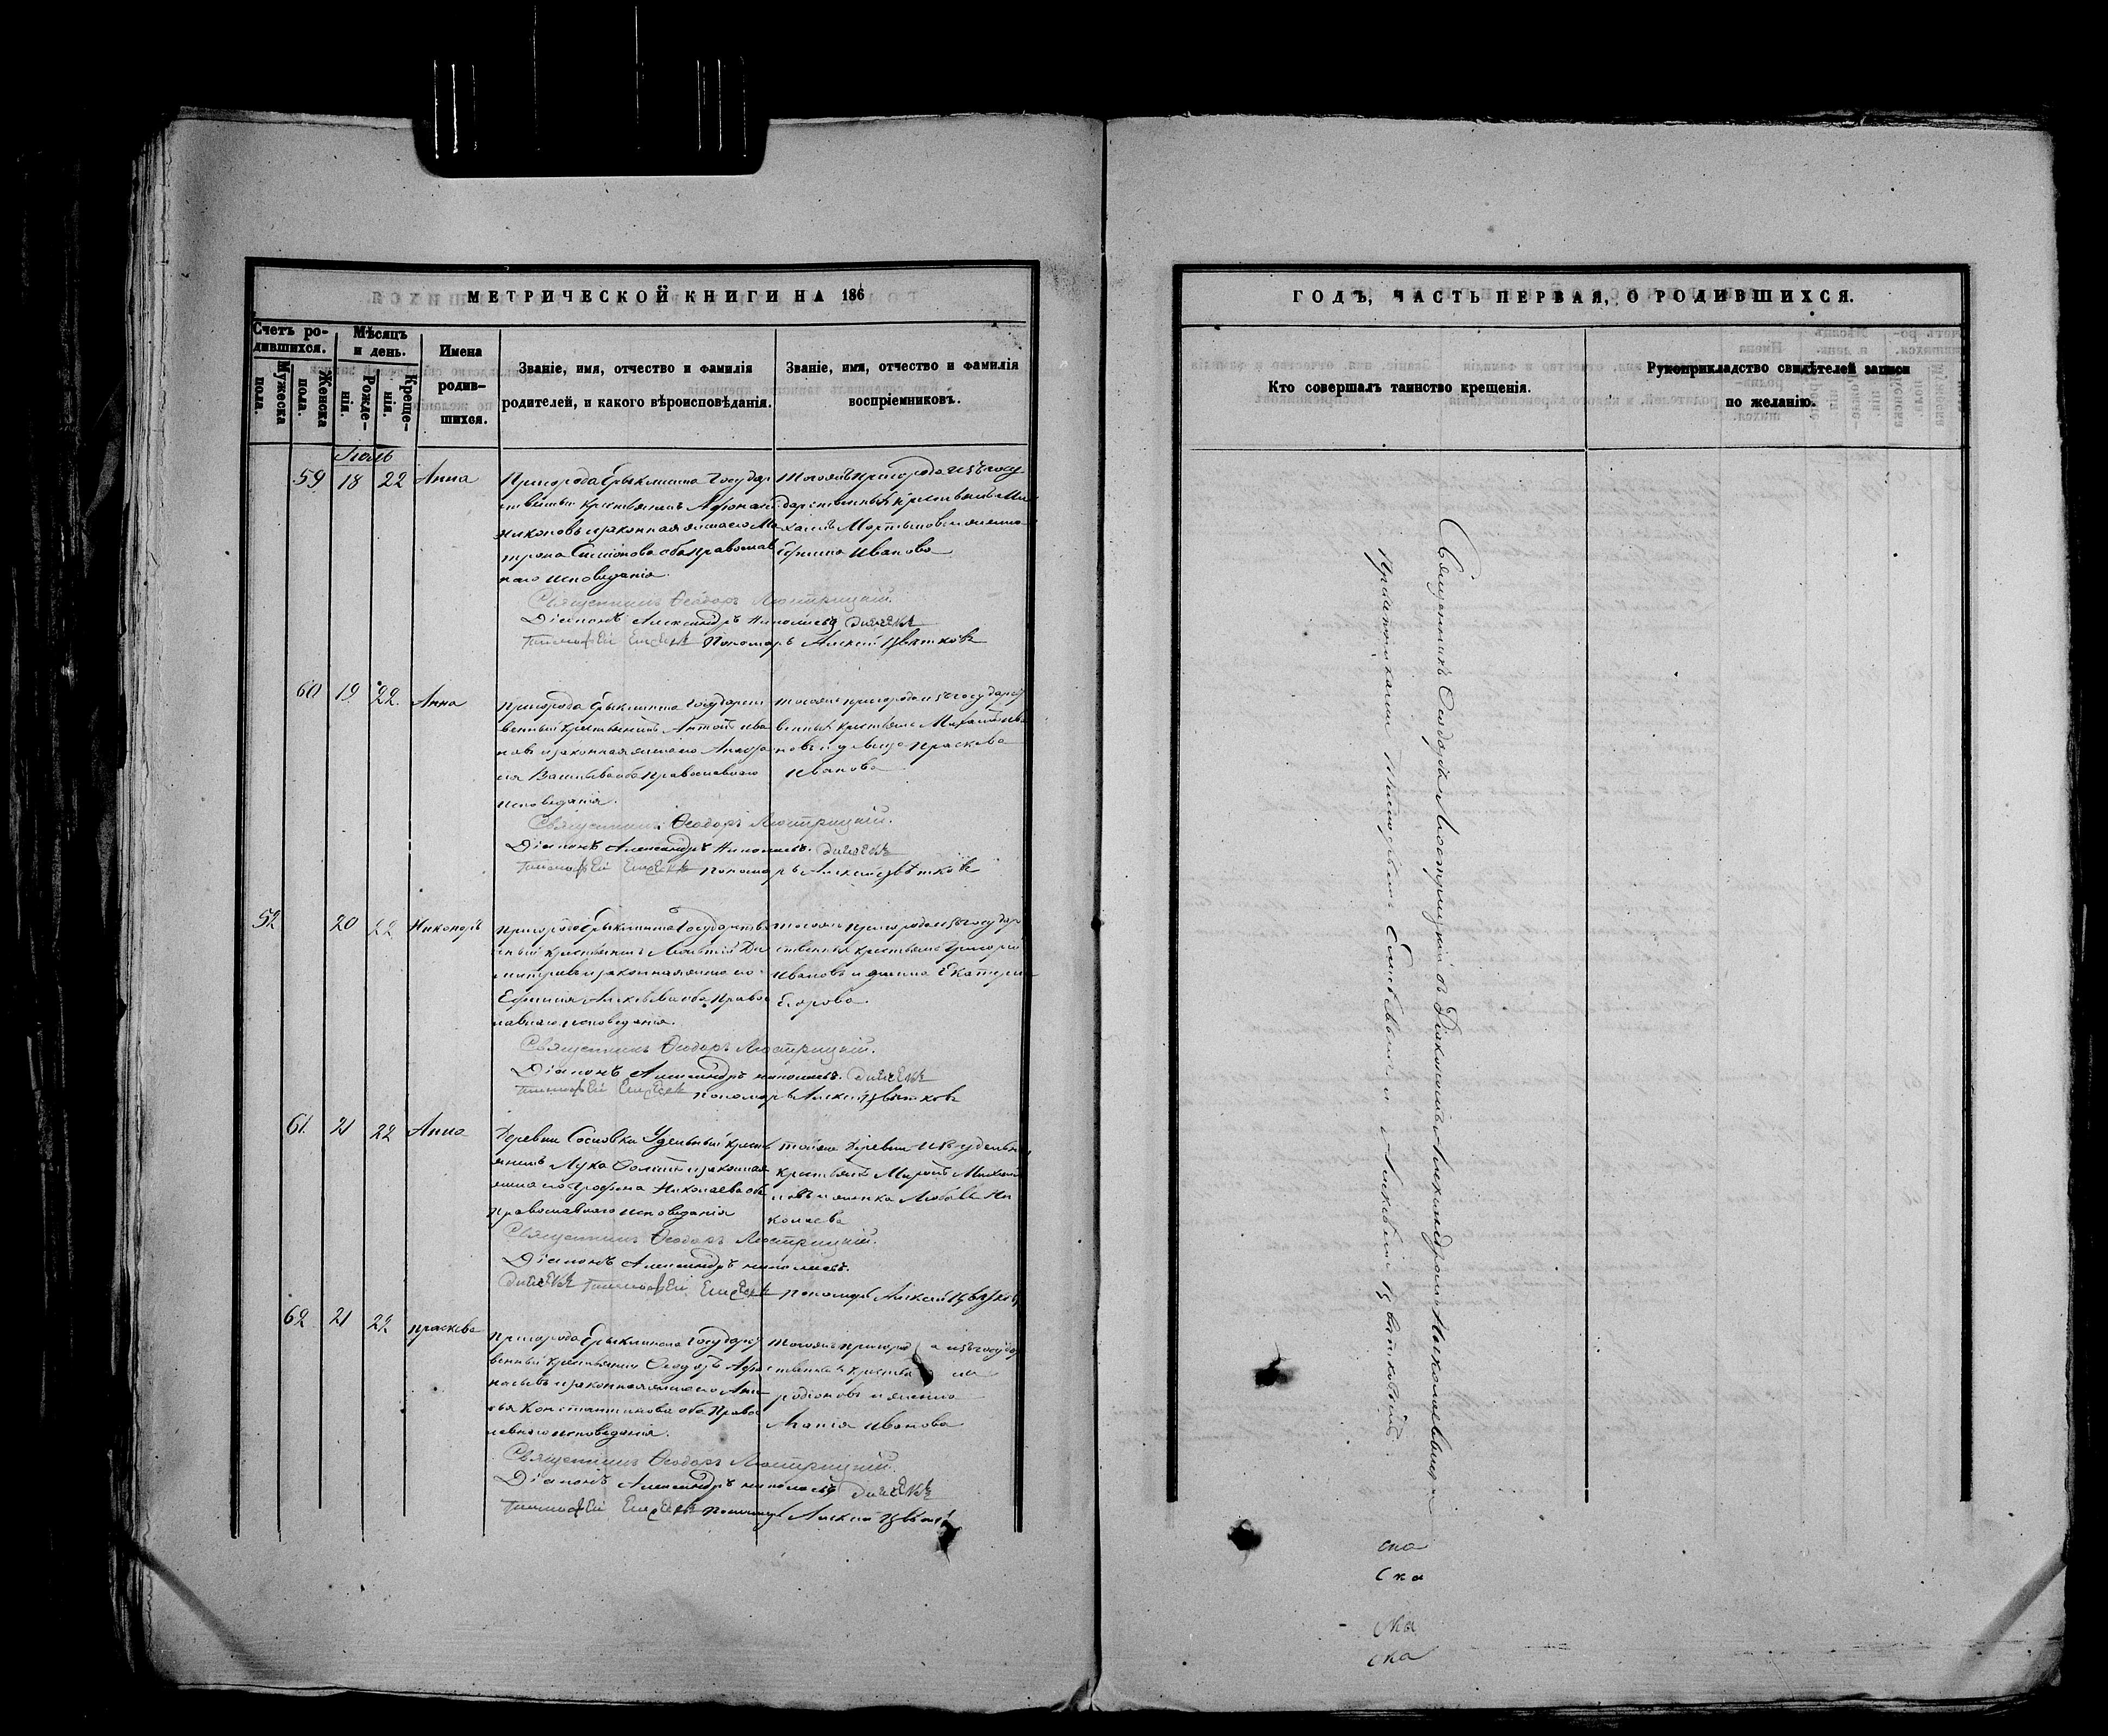 МЕТРИЧЕСКОЙ КНИГИ НА 186
Счетъ ро-
дившихся.
Мужеска
пола.
Женска
пола.
Мѣсяцъ
и день.
Рожде-
нія.
Креще-
нія.
Имена
родив-
шихся.
Званіе, имя, отчество и фамилія
родителей, и какого вѣроисповѣданія.
Званіе, имя, отчество и фамилія
воспріемниковъ.
Іюль
59 18 22 Анна
Пригорода Ерыклинска Государ
ственный крестьянинъ
и законная жена его Ма
трона Симіонова оба православ
наго исповеданія.
тогоже пригорода изъ госу
дарственныхъ крестьянъ Ми
хаилъ Мартыновъ и женка
Ирина Иванова
Священникъ Ѳеодоръ Люстрицкій.
Діаконъ Александръ Николаевъ дьячекъ
Тимофей Елисеевъ Пономарь Алексей Цвѣтковъ
60 19 22. Анна
Пригорода Ерыклинска Государст
венный крестьянинъ Антонъ Ива
новъ и законная жена его Анаста
сія Васильева оба Православнаго
исповеданія.
тогоже пригорода изъ государст
венныхъ крестьянъ Михаилъ Ива
новъ и девица Праскева
Иванова
Священникъ Ѳеодоръ Люстрицкій.
Діаконъ Александръ Николаевъ. дьячекъ
Тимофей Елисеевъ пономарь Алексей Цвѣтковъ
52 20 22 Никаноръ
Пригорода Ерыклинска Государстве
нный крестьянинъ Ди
митріевъ и законная жена его
Ефимія Алексѣева оба Право
лавнаго исповеданія.
тогоже пригорода изъ государ
ственныхъ крестьянъ Григорій
Ивановъ и Екатерина
Егорова.
Священникъ Ѳеодоръ Люстрицкій.
Діаконъ Александръ Николаевъ. дьячекъ
Тимофей Елисеевъ пономарь Алексей Цвѣтковъ
61. 21 22 Анна
Деревни Сосновки Удельный крест
янинъ Лука и законная
жена его Николаева оба
Православнаго исповеданія
тойже деревни изъ удельныхъ
крестьянъ Миронъ Михаи
ловъ и женка Любовь Ни
колаева
Священникъ Ѳеодоръ Люстрицкій.
Діаконъ Александръ Николаевъ.
Дьячекъ Тимофей Елисеевъ пономарь Алексей Цвѣтковъ
62 21 22 Праскева
Пригорода Ерыклинска Государст
венный крестьянинъ Ѳеодоръ Афа
насьевъ и законная жена его
Константинова оба Право
славнаго исповеданія.
тогоже пригорода изъ государ
ственныхъ
родіоновъ и женка
Марія Иванова
Священникъ Ѳеодоръ Люстрицкій.
Діаконъ Александръ Николаевъ дьячекъ
Тимофей Елисеевъ пономарь Алексей
ГОДЪ, ЧАСТЬ ПЕРВАЯ, О РОДИВШИХСЯ.
Кто совершалъ таинство крещенія.
Рукоприкладство свидѣтелей записи
по желанію.
Священникъ Ѳеодоръ Люстрицкій съ Діакономъ Александромъ Николаевымъ и
Причетниками Тимофѣемъ Елисѣевымъ и Алексѣемъ Цвѣтковымъ.
ска
ска
ска
ска